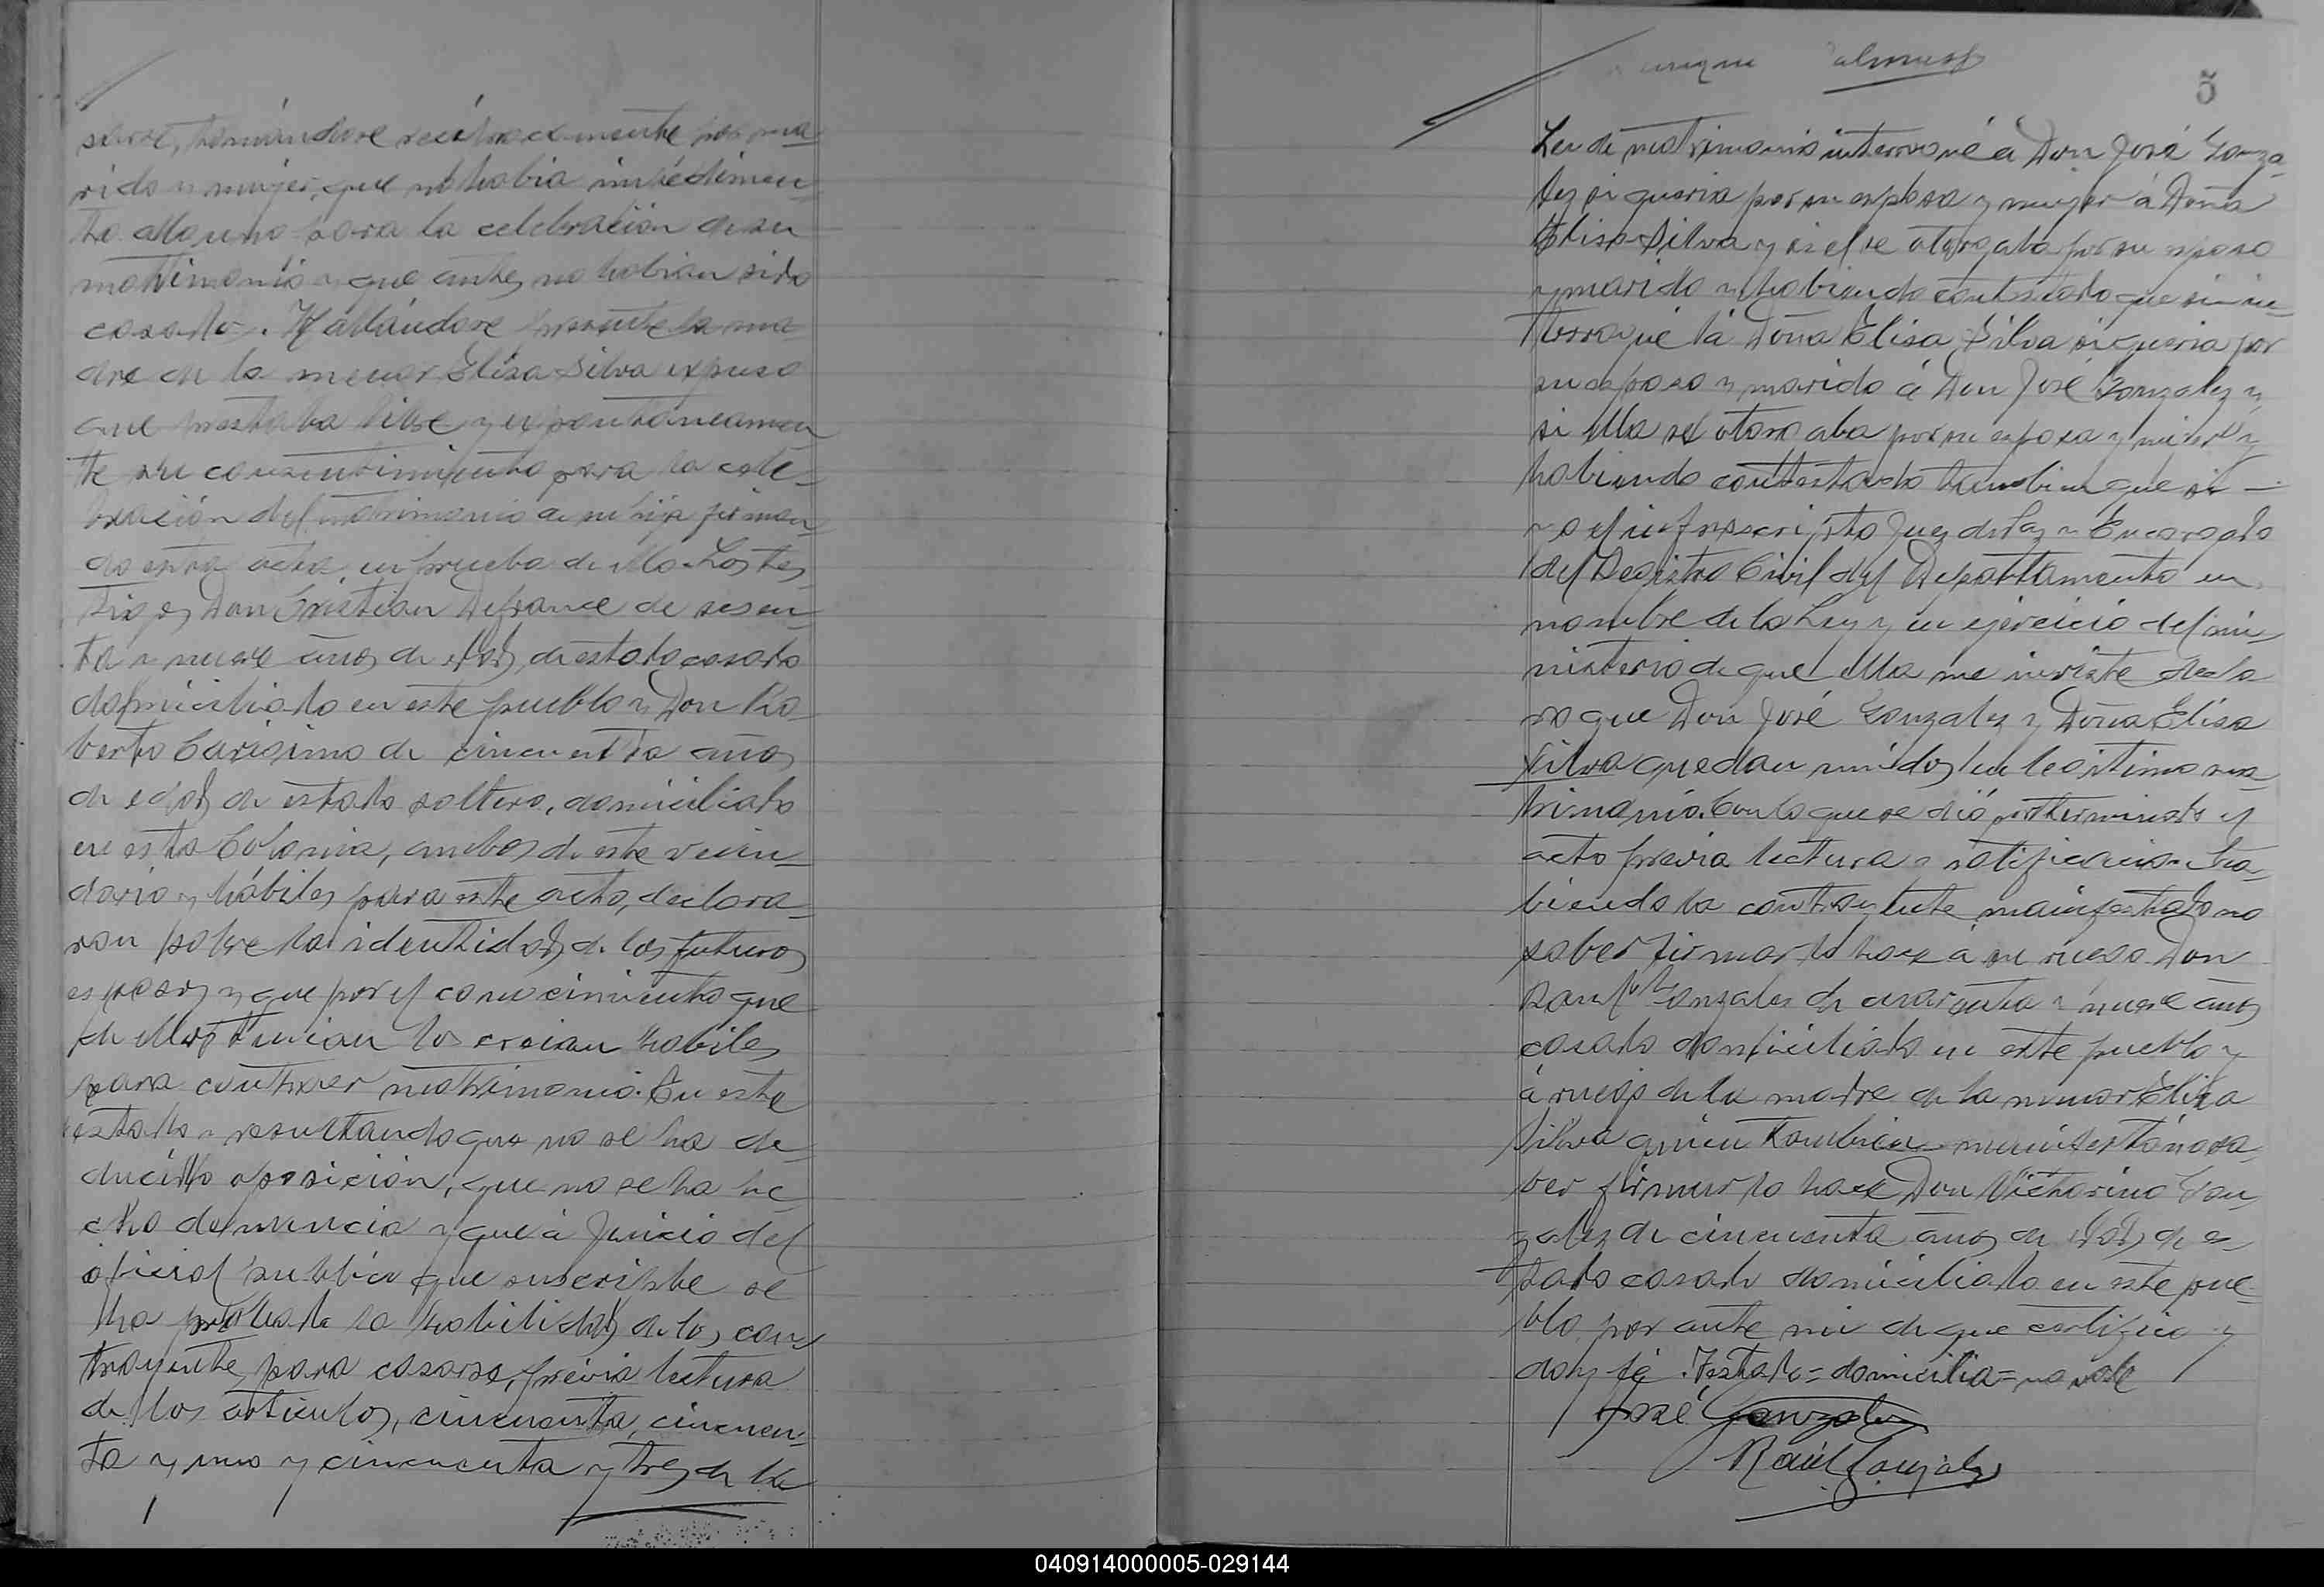 sarse, tomándose recíprocamente por ma
rido y mujer, que no habia impedimen-
to alguno para la celebración de su
matrimonio y que antes no habian sido
casados. Hallándose presente la ma
dre de la menor Elisa Silva expuso
que prestaba libre y expontáneamen
te su consentimiento para la cele-
bración del matrimonio de su hija firman-
do esta acta en prueba de ello. Los tes-
tigos Don Cristian Defrance de sesen-
ta y nueve años de edad, de estado casado
domiciliado en este pueblo y Don Ro-
berto Carisimo de cincuenta años
de edad de estado soltero, domiciliado
en esta Colonia, ambos de este vecin-
dario y hábiles para este acto, declara-
ron sobre la identidad de los futuros
esposos y que por el conocimiento que
de ellos tenian los creian habiles
para contraer matrimonio. En este
estado y resultando que no se ha de-
ducido oposición, que no se ha he-
cho denuncia y que á juicio del
oficial público que suscribe se
ha probado la habilidad de los con-
trayentes para casarse, previa lectura
de los artículos, cincuenta, cincuen-
ta y uno y cincuenta y tres de la
5
Ley de matrimonio interrogué á Don José Gonza-
lez si queria por su esposa y mujer á Doña
Elisa Silva y si el se otorgaba por su esposo
y marido y habiendo contestado que si in-
terrogué á Doña Elisa Silva si queria por
su esposo y marido á Don José Gonzalez y
si ella se otorgaba por su esposa y mujer y
habiendo contestado tambien que si —
yo el infrascripto Juez de Paz y Encargado
del Registro Civil del Departamento en
nombre de la Ley y en ejercicio del mi-
nisterio de que ella me inviste decla
ro que Don José Gonzalez y Doña Elisa
Silva quedan unidos en legitimo ma-
trimonio. Con lo que se dió por terminado el
acto previa lectura y ratificacion. Ha-
biendo la contrayente manifestado no
saber firmar lo hace á su ruego Don
Raul Gonzalez de cuarenta y nueve años
casado domiciliado en este pueblo y
á ruego de la madre de la menor Elisa
Silva quien tambien manifestó no sa-
ber firmar lo hace Don Victorino Gon-
zalez de cincuenta años de edad, de es-
tado casado domiciliado en este pue-
blo por ante mi de que certifico y
doy fé. Testado = domicilia = no vale
José Gonzalez
Raúl Gonzalez
040914000005-029144